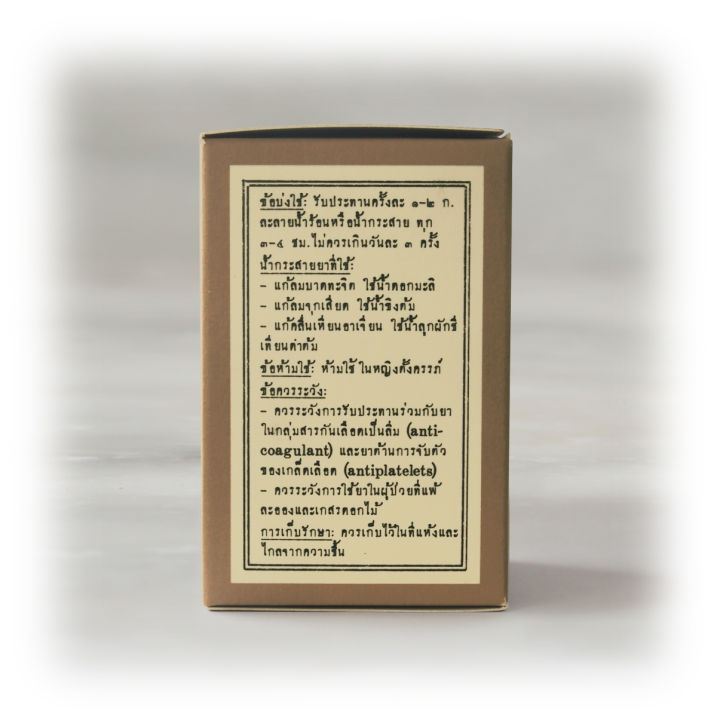 ข้อบ่งใช้: รับประทานครั้งละ ๑-๒ ก.
ละลายน้ำร้อนหรือน้ำกระสาย ทุก
๓-๔ ชม.ไม่ควรเกินวันละ ๓ ครั้ง
น้ำกระสายยาที่ใช้:
- แก้ลมบาดทะจิต ใช้น้ำดอกมะลิ
- แก้ลมจุกเสียด ใช้น้ำขิงต้ม
- แก้คลื่นเหียนอาเจียน ใช้น้ำลูกผักชี
เทียนดำต้ม
ข้อห้ามใช้: ห้ามใช้ ในหญิงตั้งครรภ์
ข้อควรระวัง:
- ควรระวังการรับประทานร่วมกับยา
ในกลุ่มสารกันเลือดเป็นลิ่ม (anti-
coagulant) และยาต้านการจับตัว
ของเกล็ดเลือด (antiplatelets)
- ควรระวังการใช้ยาในผู้ป่วยที่แพ้
ละอองและเกสรดอกไม้
การเก็บรักษา: ควรเก็บไว้ในที่แห้งและ
ไกลจากความชื้น